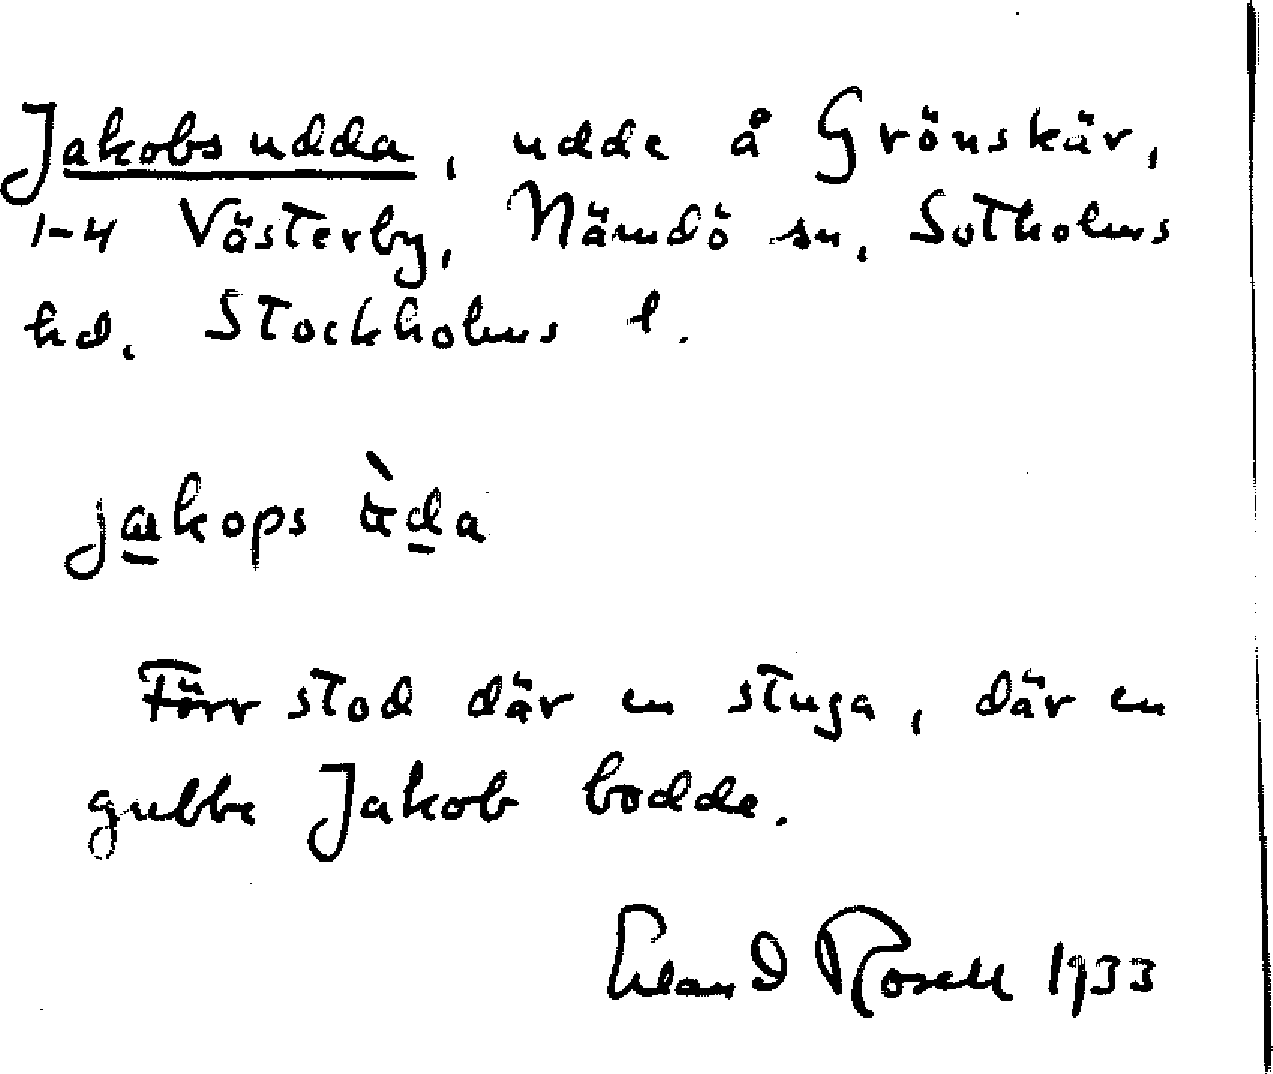 Jakobs udda, udde å Grönskär,
1-4 Västerby, Nämdö sn, Sotholms
hd, Stockholms l.
jakops ùda
Förr stod där en stuga, där en
gubbe Jakob bodde.
Erland Rosell 1933